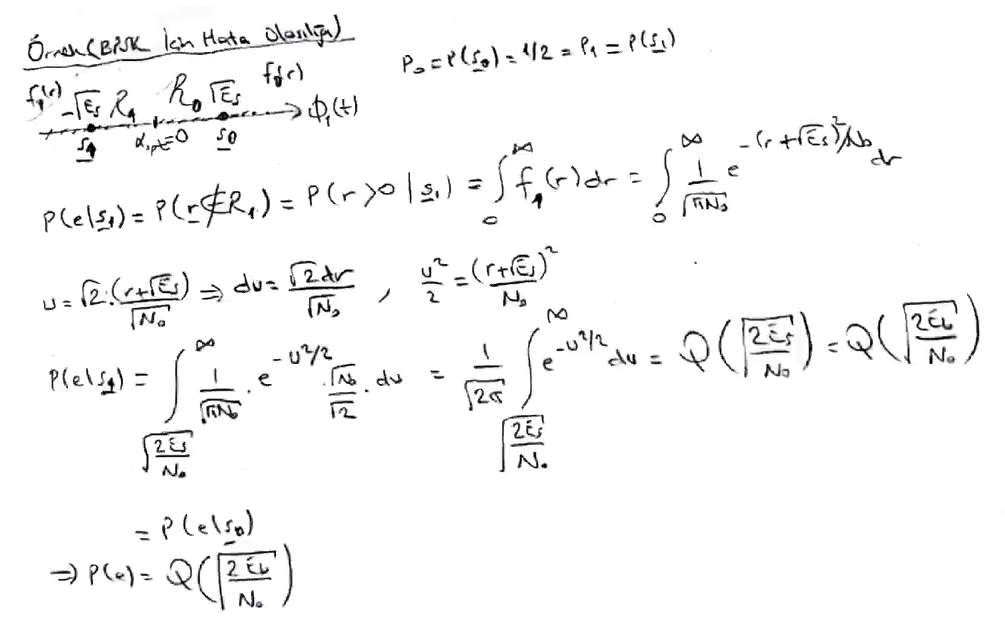 Örnek (BPSK İçin Hata Olasılığı)
P₀ = P(s₀) = 1/2 = P₁ = P(s₁)
f₁(r) -√Es R₁ R₀ √Es f₀(r)
s₁ αₒₚₜ=0 s₀ φ₁(t)
P(e|s₁) = P(r∉R₁) = P(r>0|s₁) = ∫₀^∞ f₁(r)dr = ∫₀^∞ 1/√(πN₀) e^(-(r+√Es)²/N₀) dr
u = √2·(r+√Es)/√N₀ ⇒ du = √2 dr/√N₀ , u²/2 = (r+√Es)²/N₀
P(e|s₁) = ∫_{√(2Es/N₀)}^∞ 1/√(πN₀) · e^(-u²/2) · √N₀/√2 · du = 1/√(2π) ∫_{√(2Es/N₀)}^∞ e^(-u²/2) du = Q(√(2Es/N₀)) = Q(√(2Eb/N₀))
= P(e|s₀)
⇒ P(e) = Q(√(2Eb/N₀))